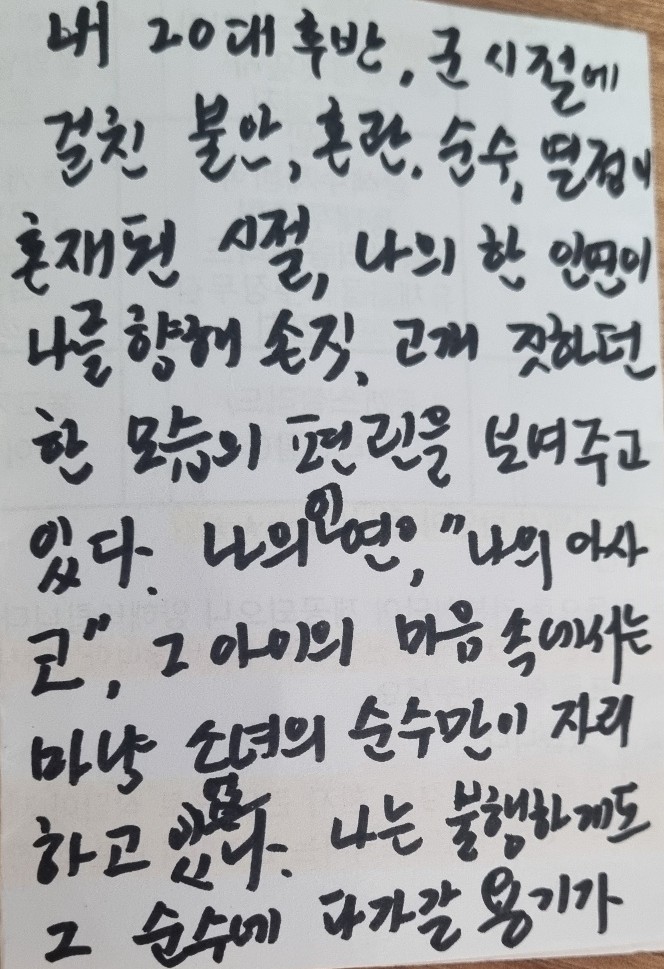 내 20대 후반, 군 시절에
걸친 불안, 혼란, 순수, 열정이
혼재된 시절, 나의 한 인연이
나를 향해 손짓, 고개 짓하던
한 모습의 편린을 보여주고
있다. 나의 인연, "나의 아사
코", 그 아이의 마음 속에서는
마냥 소녀의 순수만이 자리
하고 있었다. 나는 불행하게도
그 순수에 다가갈 용기가